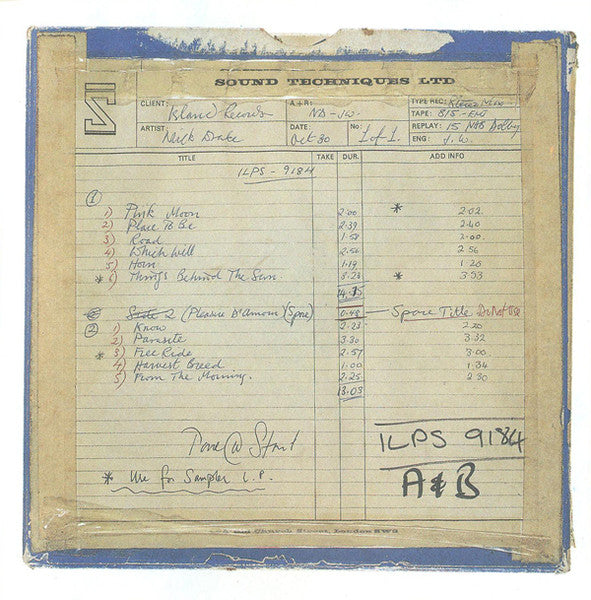 SOUND TECHNIQUES LTD
CLIENT: Island Records A+R: ND - JW. TYPE REC: Stereo Mix
TAPE: 815 - EMI
ARTIST: Nick Drake DATE: Oct 30 No: 1 of 1. REPLAY: 15 NAB Dolby
ENG: J.W.
TITLE TAKE DUR. ADD INFO
ILPS - 9184
1
1) Pink Moon 2.00 * 2.02
2) Place To Be 2.39 2.40
3) Road 1.58 2.00
4) Which Will 2.56 2.56
5) Horn 1.19 1.20
* 6) Things Behind The Sun. 3.23 * 3.53
14.15
Side 2 (Pleasure D'amour) (Spare) 0.48 Spare Title Do Not Use
2 1) Know 2.23 2.20
2) Parasite 3.30 3.32
* 3) Free Ride 2.57 3.00
4) Harvest Breed 1.00 1.34
5) From The Morning. 2.25 2.30
13.03
Tone @ Start
ILPS 9184
* Use for Sampler L.P.
A & B
Street, London SW3